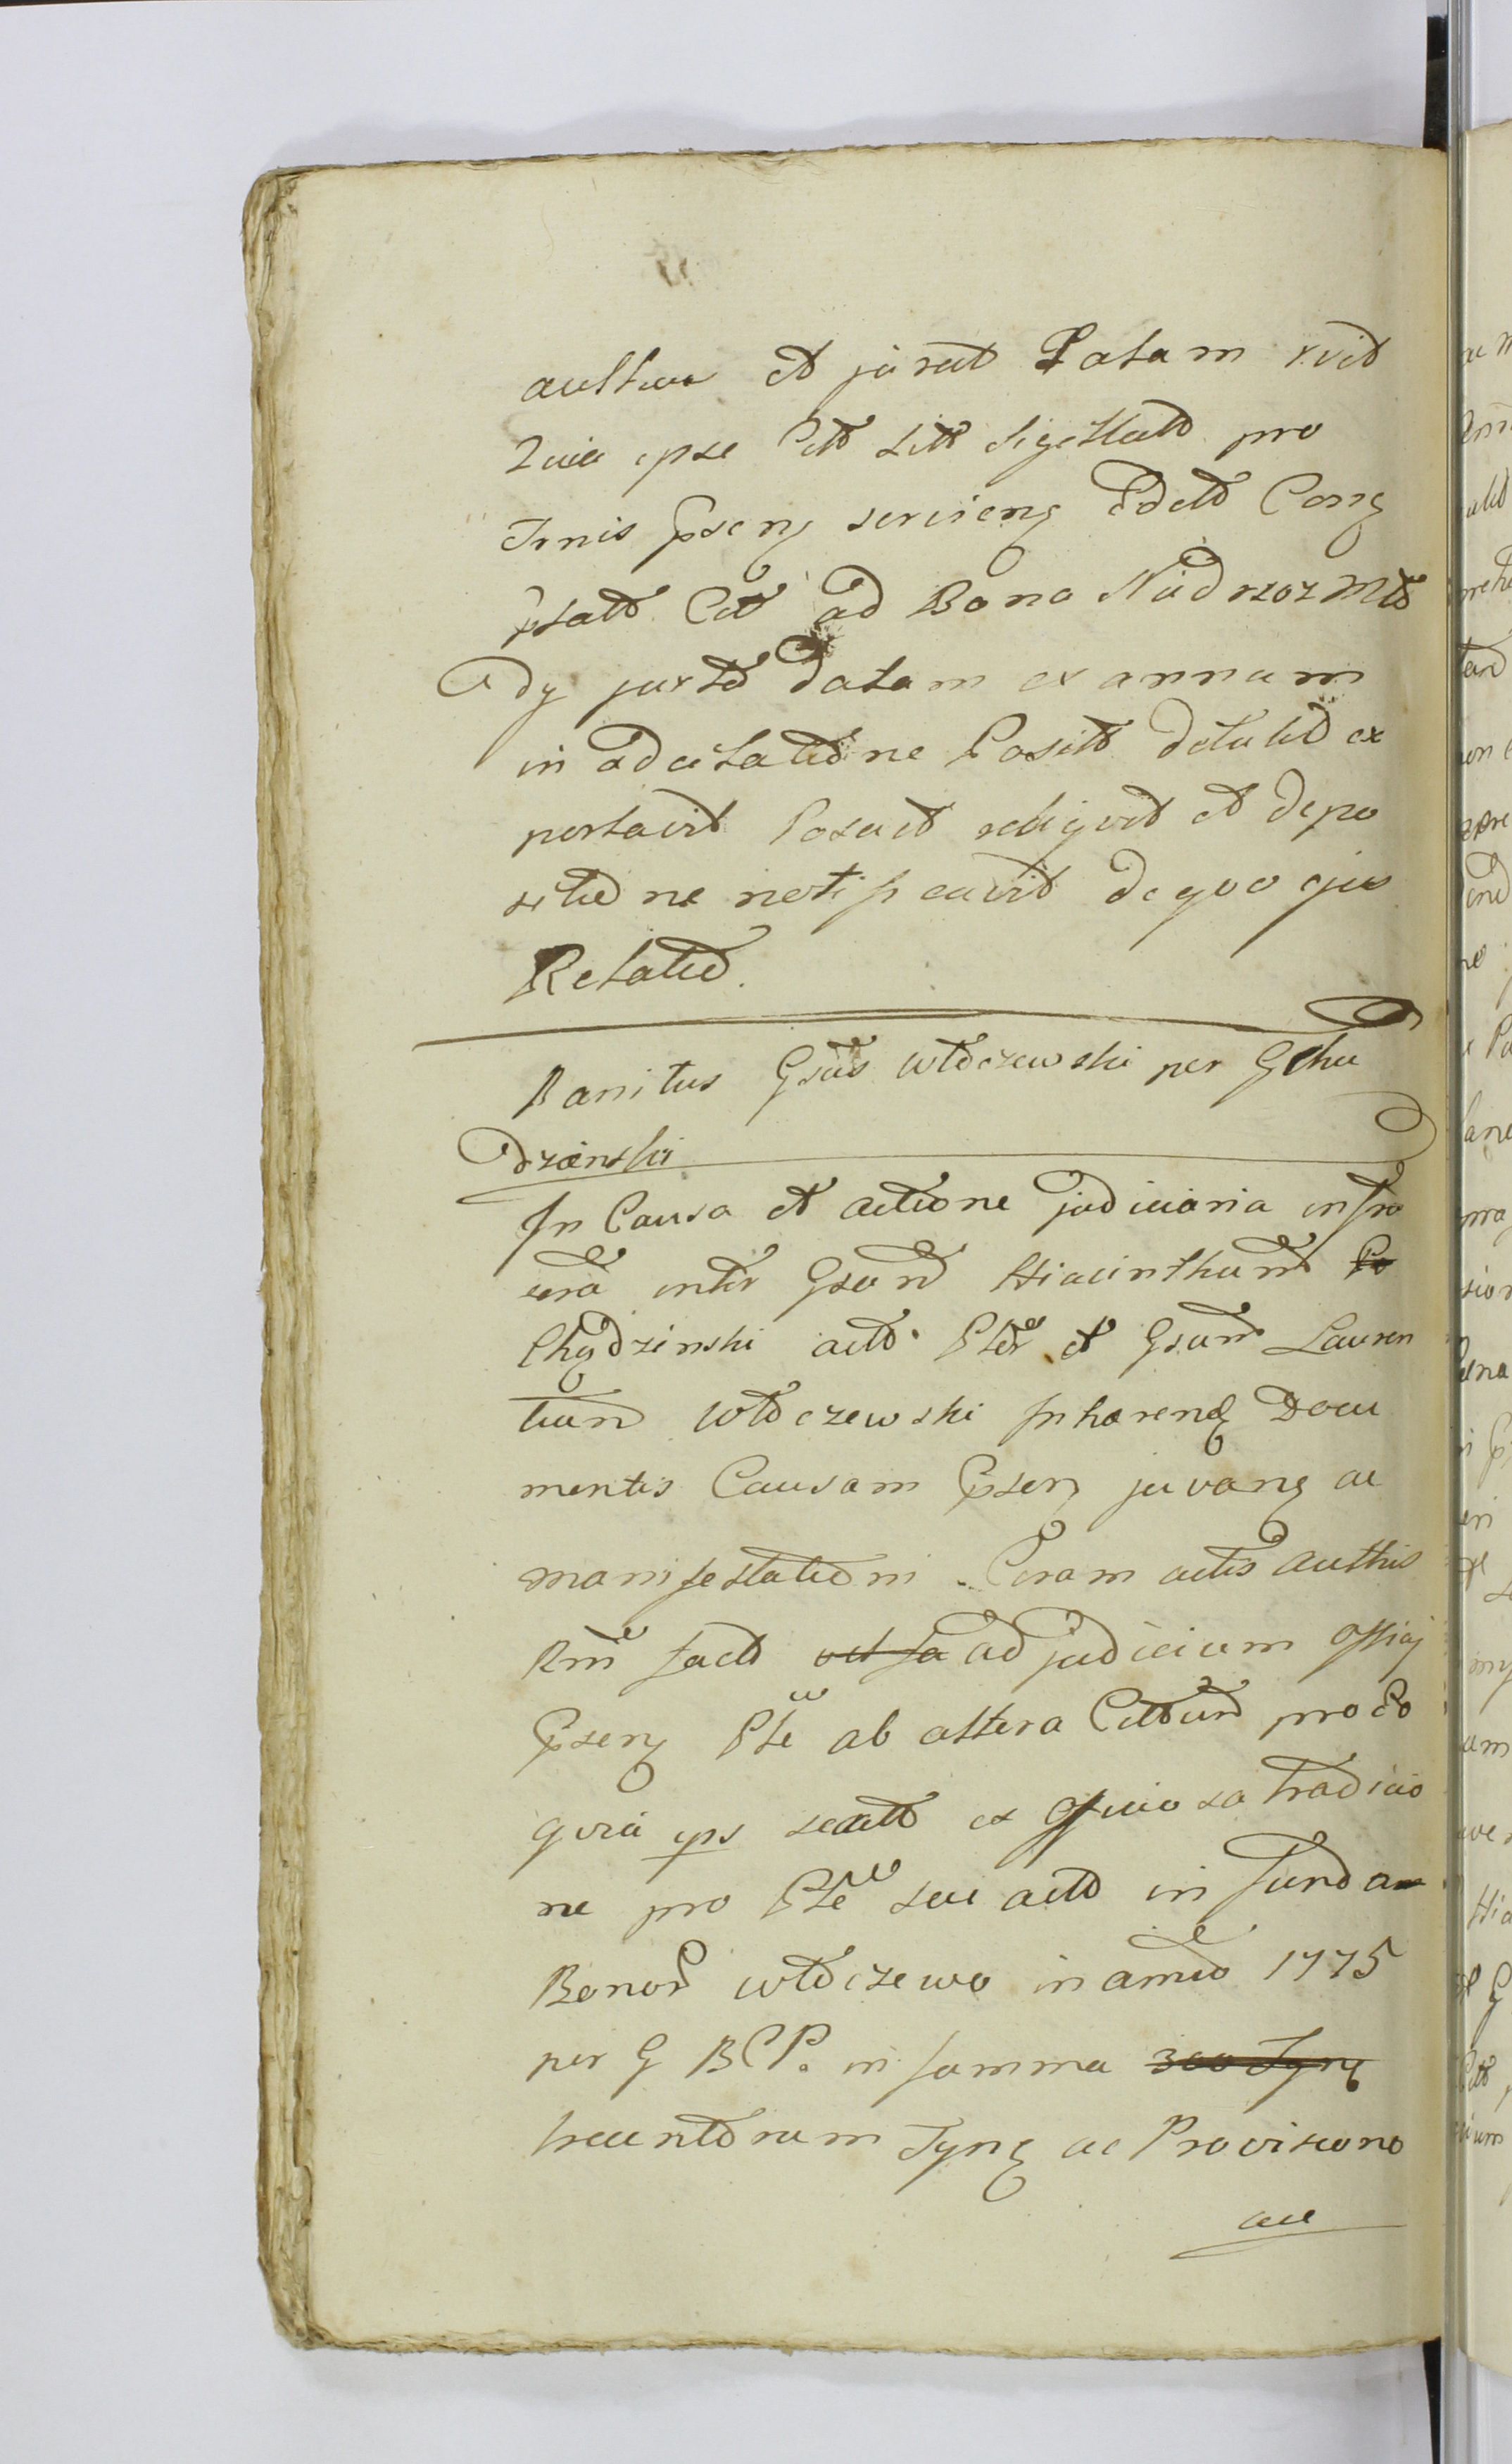 et jurat Latam
Quia ipse Citt Litt sigillatt pro
Trnis pseng servieng Edett Cong
psatt Citt ad Bona Nadrzoz Mtt
dy juxtd datam ex annum
in adcitatione Positt detulit ex
portavit Posuit reliqvit et depo
sitione notificavit de qvo ejus
Relatio.
Banitus Gsus Wtdczewski per G Chu
dzinski
In Causa et actione judiciaria infra
inter Gsum Hiacinthum
Chydzinski actt Ptr et Gsum Lauren
tium Wtdczewski Inhæreng Docu
mentis Causam pseng juvang ac
manifestationi Coram actis authis
Rm fact ad judicium Offici
pseng Pte ab altera Citatum pro Eo
qvia ips ex Officiosa tradicio
ne pro Pte sui actt in funda
Bonor Wtdczewo in anno 1775
per G BCP. in summa 300 Tyng
trecentorum Tyng ac Provisiono